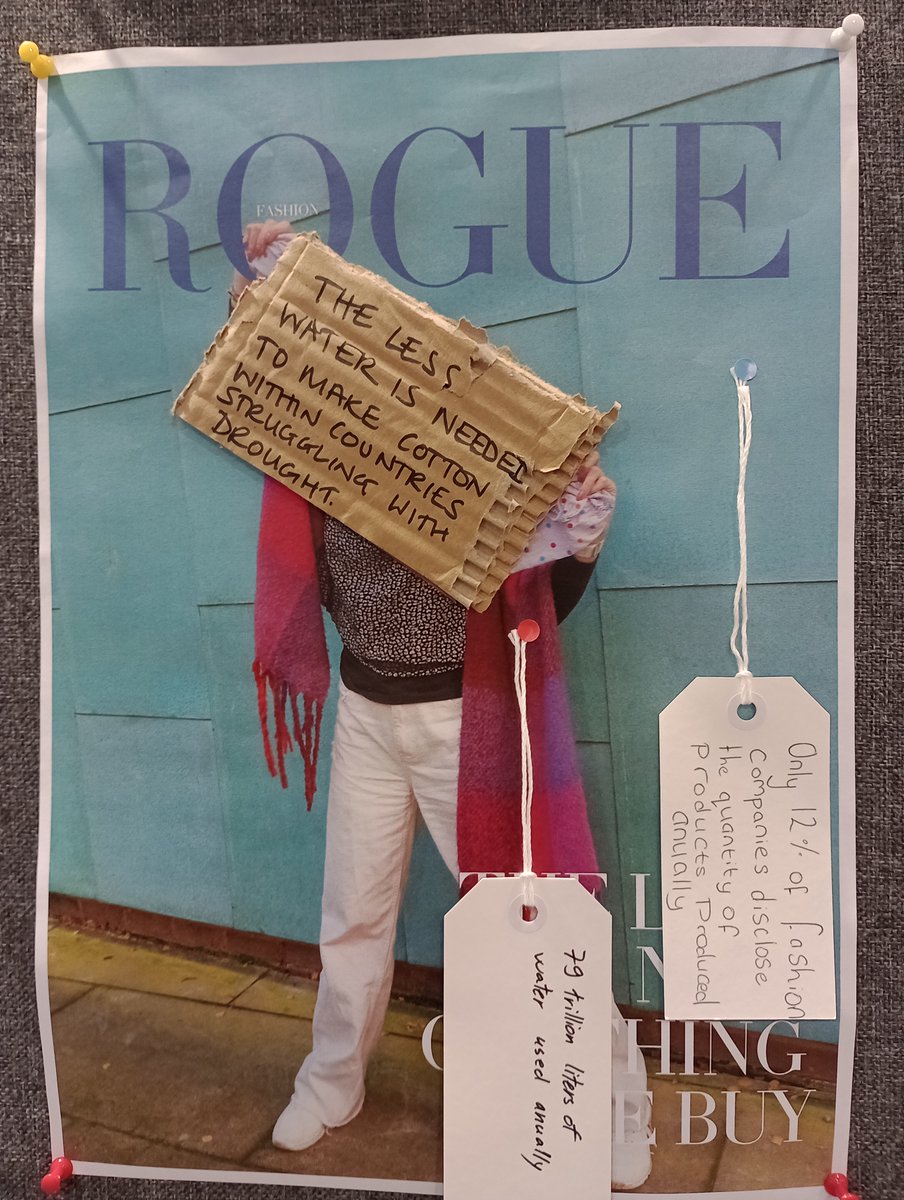 ROGUE
FASHION
THE LESS
WATER IS NEEDED
TO MAKE COTTON
WITHIN COUNTRIES
STRUGGLING WITH
DROUGHT.
Only 12% of fashion
companies disclose
the quantity of
products Produced
anually
79 trillion liters of
water used anually
THE L
N
C THING
E BUY